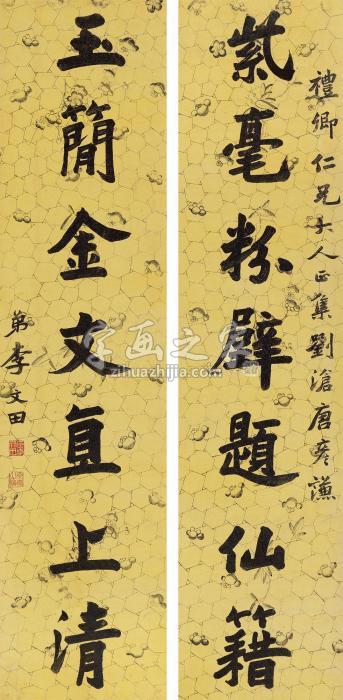 禮卿仁兄大人正集劉滄唐彥謙
紫毫粉壁題仙籍
玉簡金文直上清
弟李文田
字画之家
zihuazhijia.com